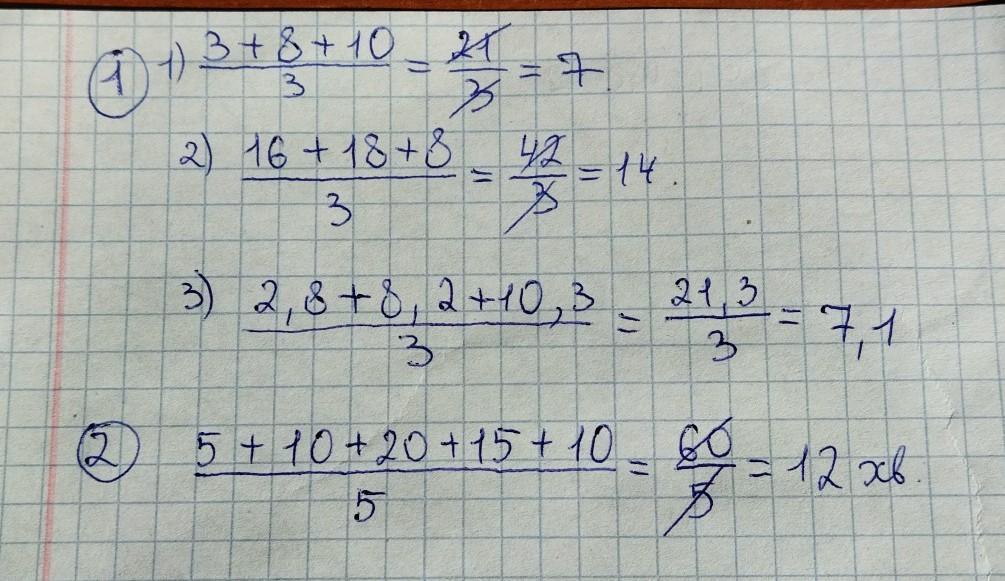 1 1) (3 + 8 + 10)/3 = 21/3 = 7
2) (16 + 18 + 8)/3 = 42/3 = 14.
3) (2,8 + 8,2 + 10,3)/3 = 21,3/3 = 7,1
2 (5 + 10 + 20 + 15 + 10)/5 = 60/5 = 12 хв.